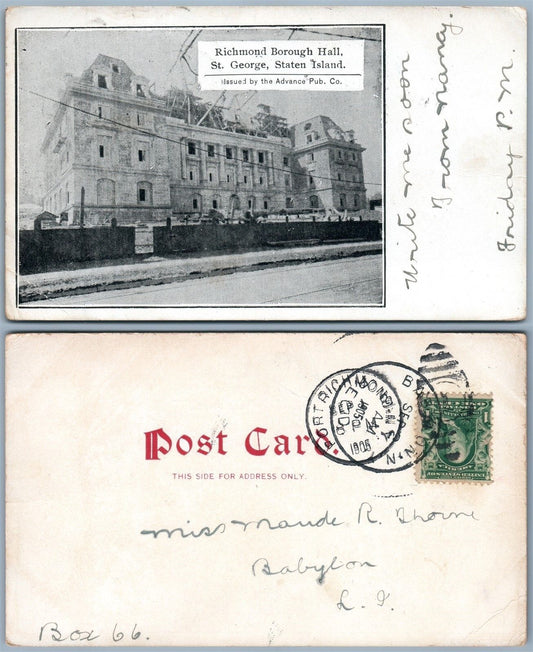 Richmond Borough Hall,
St. George, Staten Island.
Issued by the Advance Pub. Co.
Write me soon
From Nancy.
Friday P. M.
Post Card.
THIS SIDE FOR ADDRESS ONLY.
PORT RICHMOND
1905
BABYLON, N.
SEP
Miss Maude R. Thorne
Babylon
L. I.
Box 66.